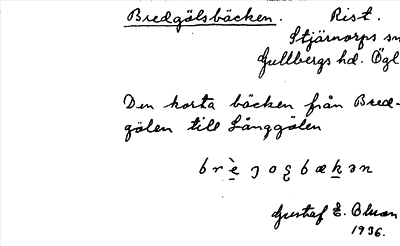 Bredgölsbäcken. Rist.
Stjärnorps sn
Gullbergs hd. Ögl
Den korta bäcken från Bred-
gölen till Långgölen
Gustaf E.
1936.